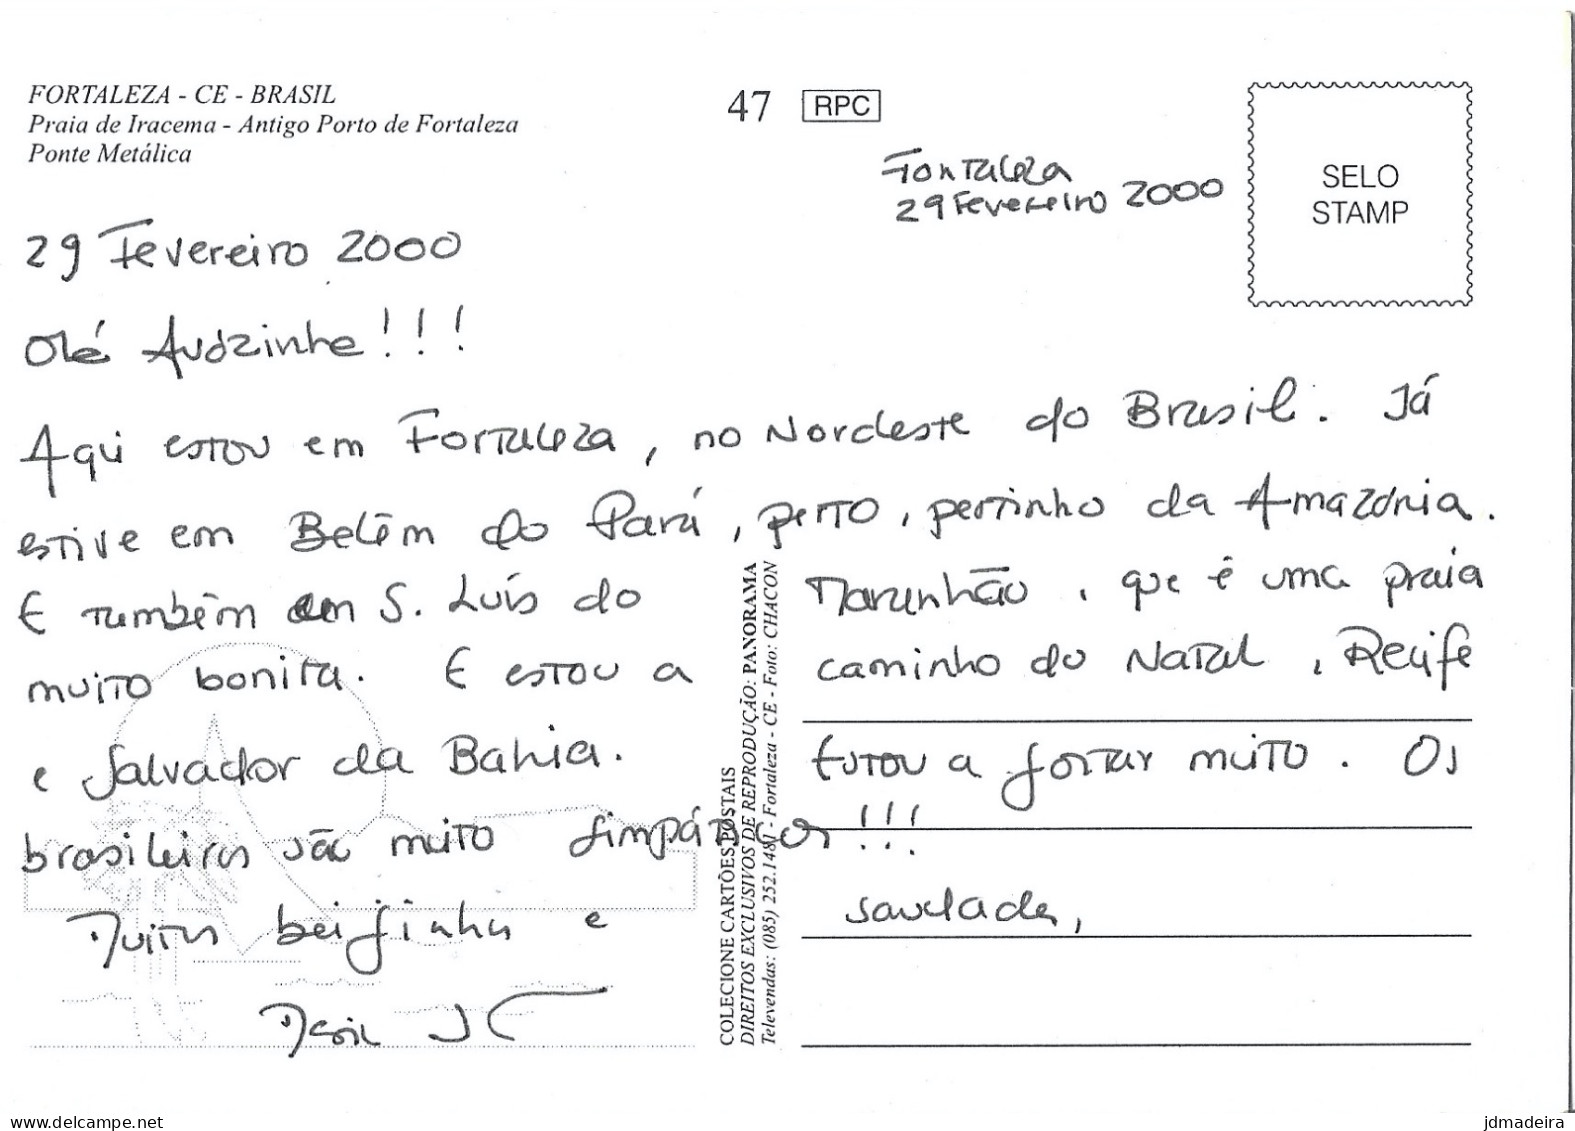 FORTALEZA - CE - BRASIL
Praia de Iracema - Antigo Porto de Fortaleza
Ponte Metálica
47 RPC
SELO
STAMP
Fortaleza
29 Fevereiro 2000
29 Fevereiro 2000
Olá !!!
Aqui estou em Fortaleza, no Nordeste do Brasil. Já
estive em Belém do Pará, perto, pertinho da Amazónia.
E também em S. Luís do Maranhão, que é uma praia
muito bonita. E estou a caminho do Natal, Recife
e Salvador da Bahia. Estou a gostar muito. Os
brasileiros são muito simpáticos!!!
Muitos beijinhos e saudades,
COLECIONE CARTÕES POSTAIS
DIREITOS EXCLUSIVOS DE REPRODUÇÃO: PANORAMA
Televendas: (085) 252.1481 - Fortaleza - CE - Foto: CHACON
www.delcampe.net
jdmadeira